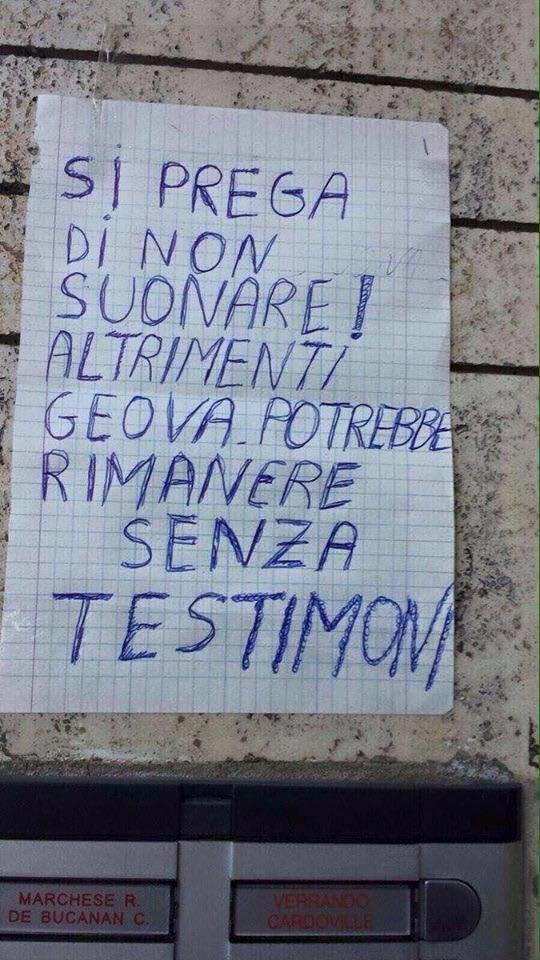 Si PREGA
Di NON
SUONARE!
ALTRIMENTI
GEOVA POTREBBE
RIMANERE
SENZA
TESTIMONI
MARCHESE R.
DE BUCANAN C.
VERRANDO
CARDOVILLE